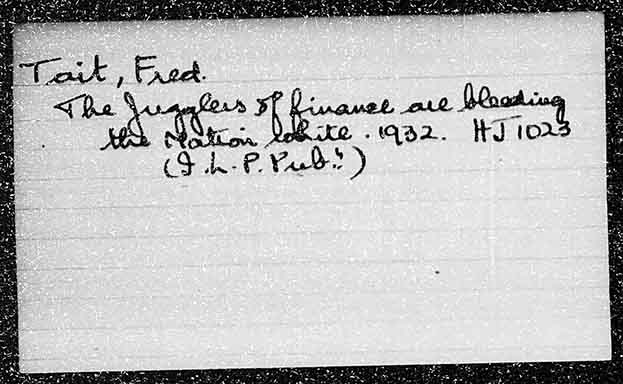 Tait, Fred.
The Jugglers of finance are bleeding
the Nation white. 1932. HJ1023
(I.L.P. Pub.)